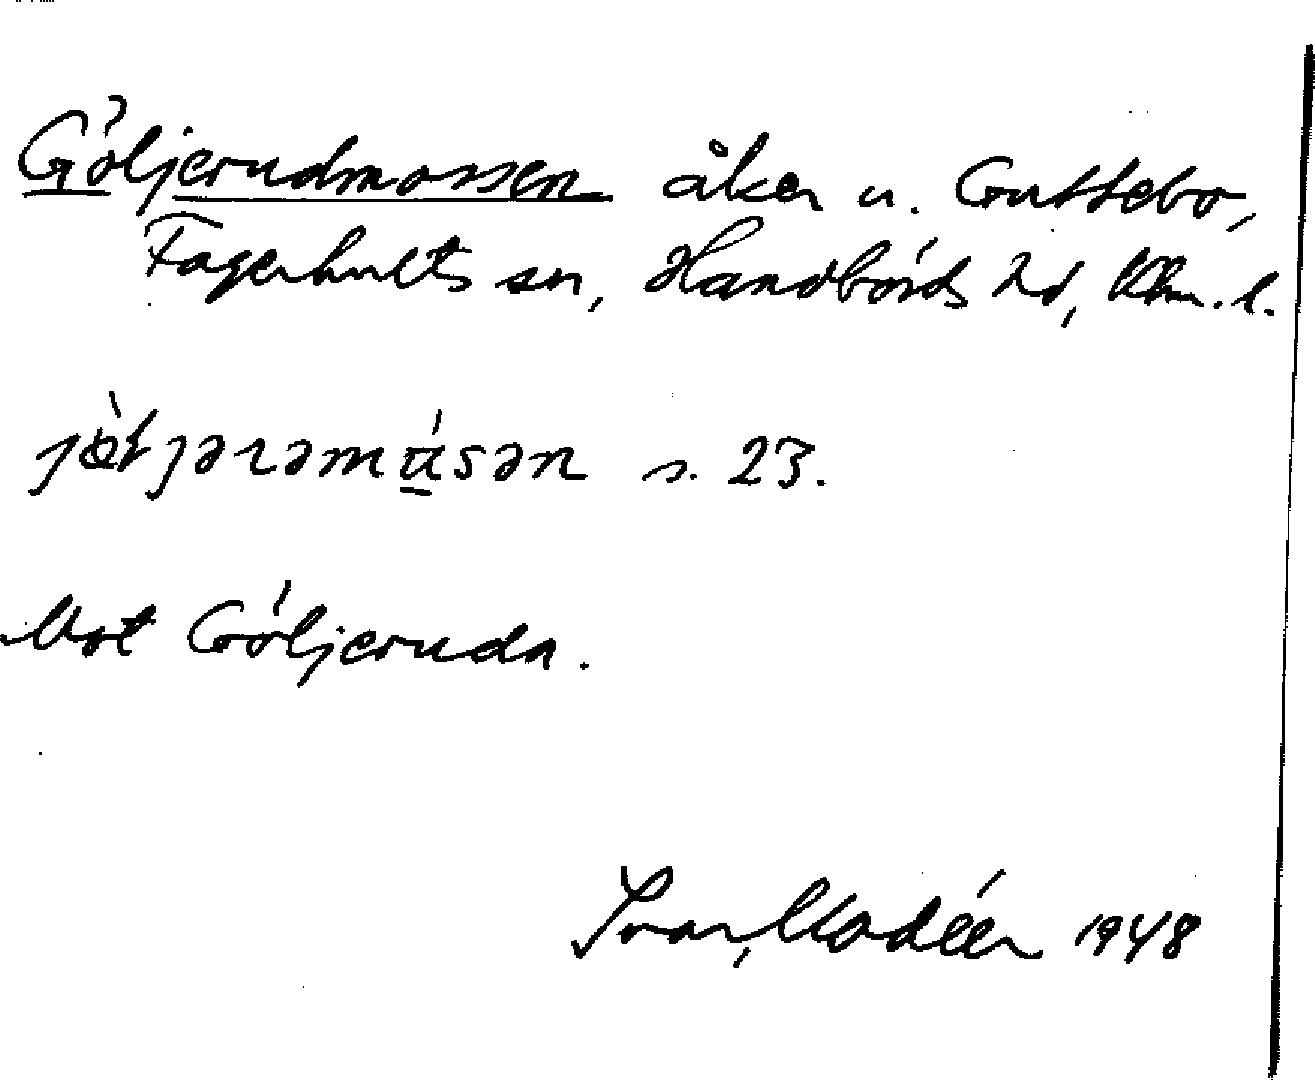 Göljerudmossen åker u. Guttebo,
Fagerhults sn, Handbörds hd, Klm. l.
s. 23.
Mot Göljeruda.
Ivar Modéer 1948